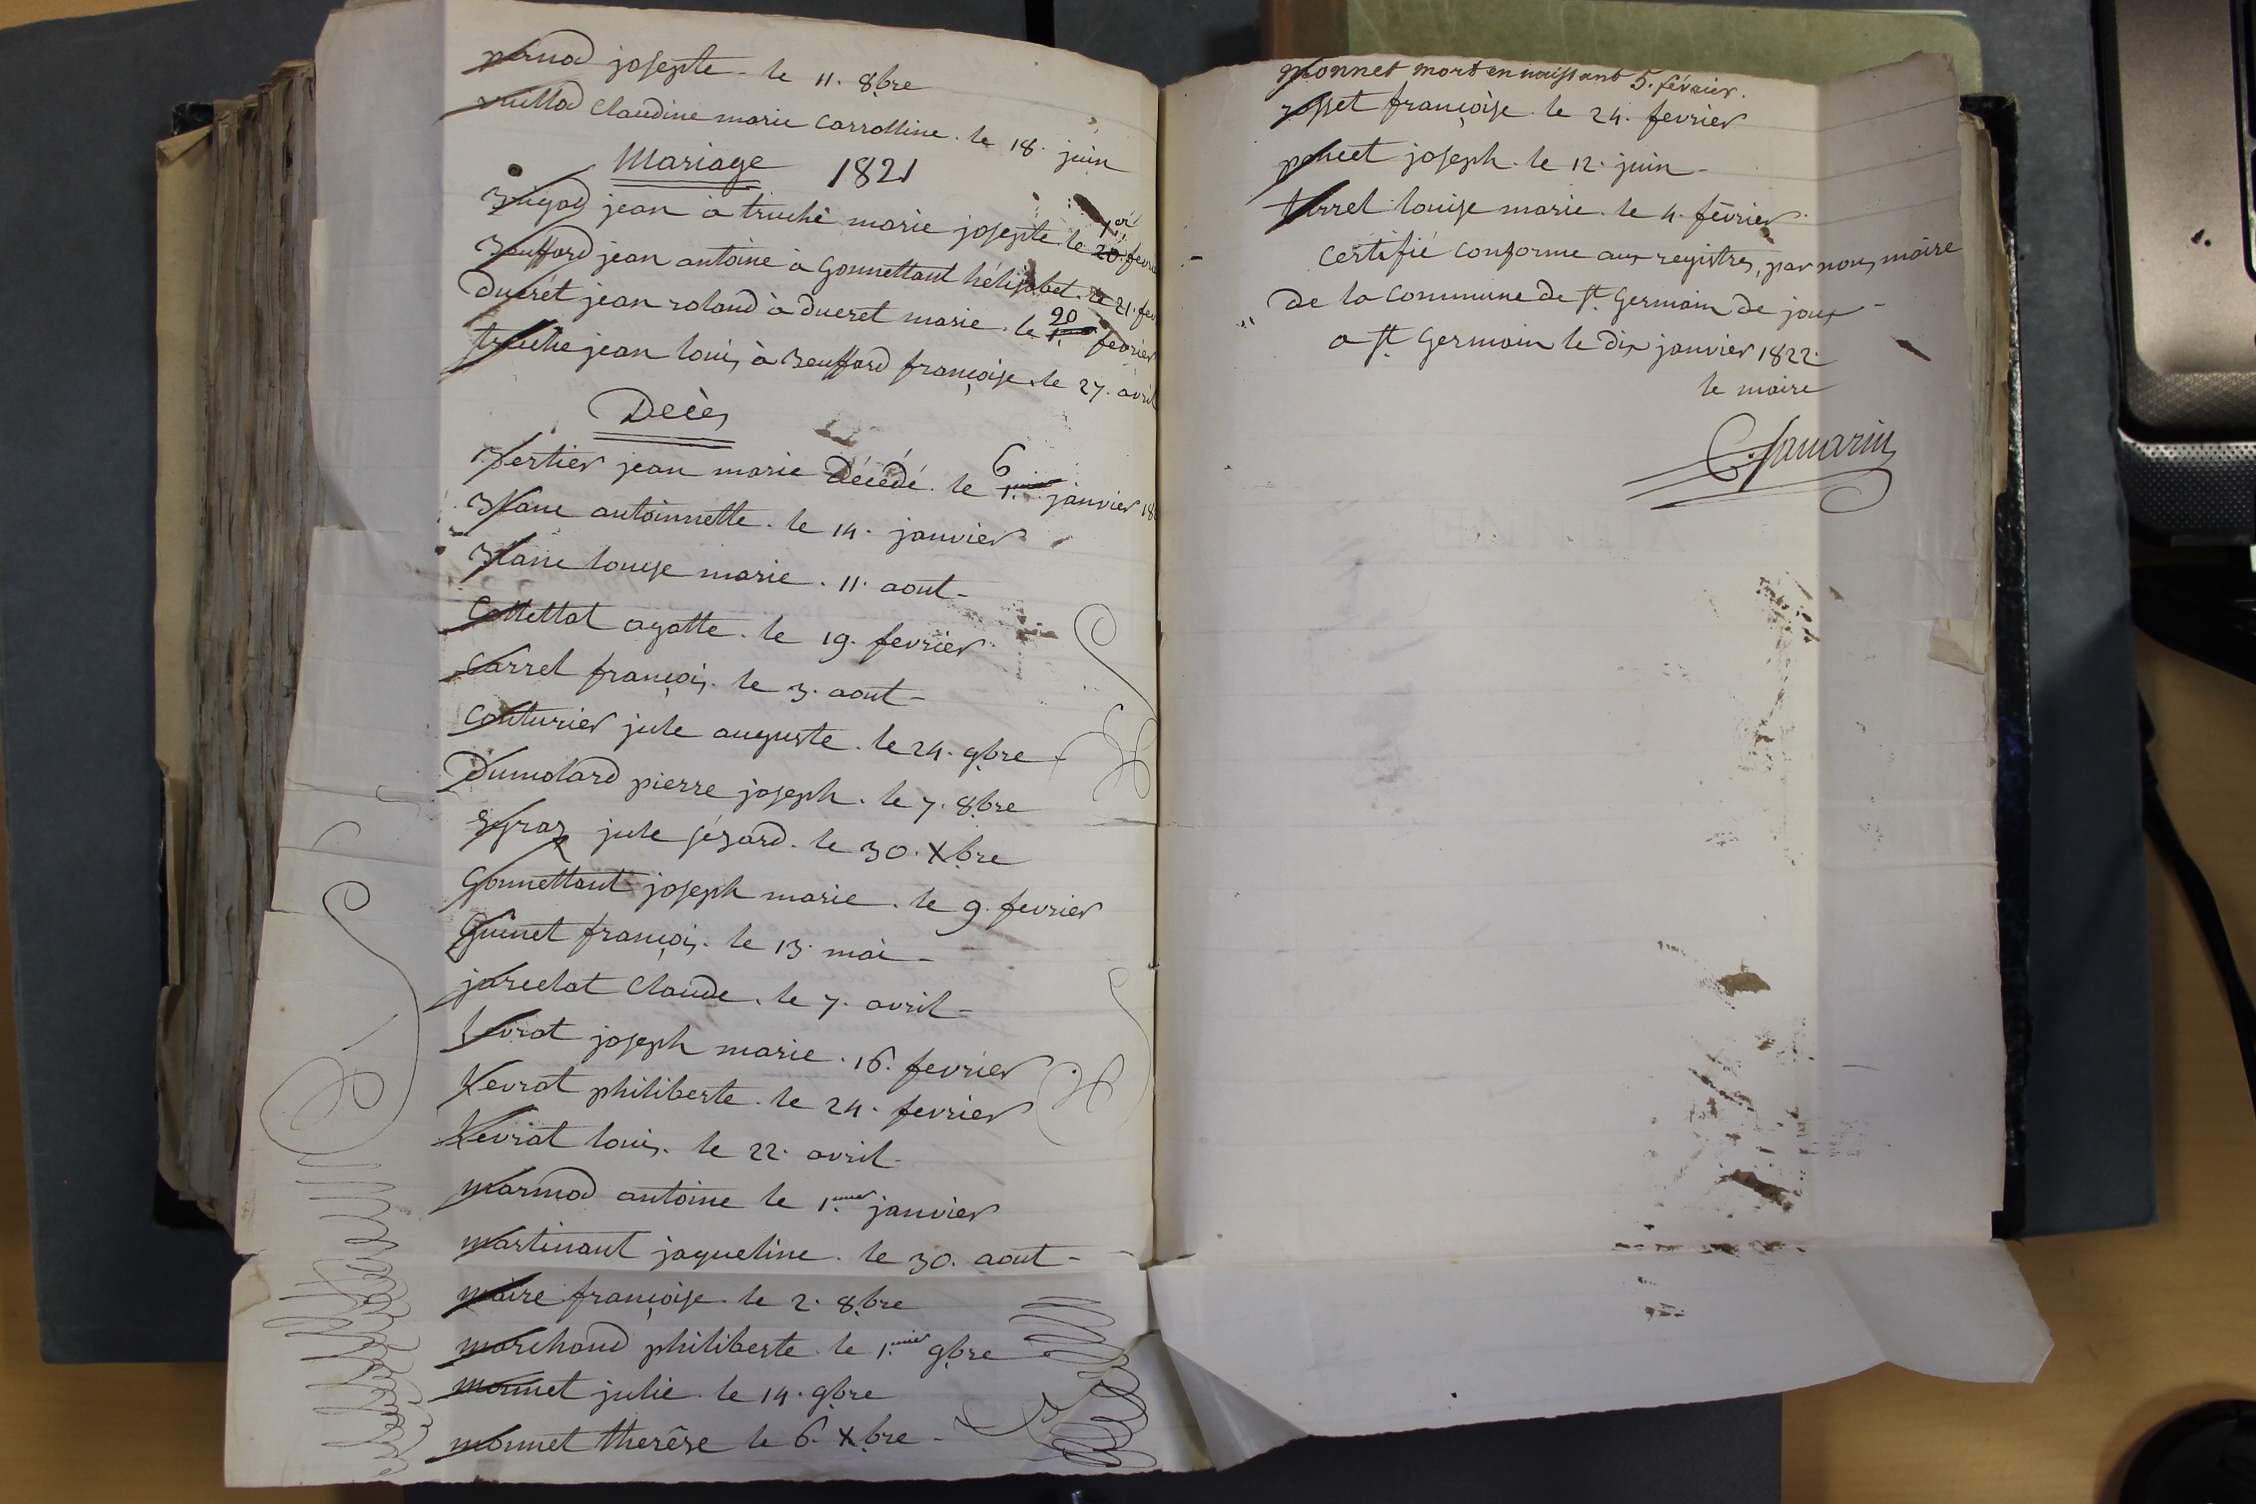 pernod josepte. le 11. 8bre
vuillod Claudine marie Carrolline. le 18. juin
Mariage 1821
jean à truche marie josepte. le 20. 1er fevrier
Beufford jean antoine à Gonnettant hélisabet. le 21. fev
Ducret jean roland à ducret marie. le 1. 20 fevrier
truche jean louis à Beufford françoise. le 27. avril
Décès
Bertier jean marie Décédé. le 1. 6 janvier 18
Blanc antoinnette. le 14. janvier
Blanc louise marie. 11. aout
Cottettat agatte. le 19. fevrier
Carrel françois. le 3. aout
Couturier jule auguste. le 24. 9bre
Dumolard pierre joseph. le 7. 8bre
jule sésard. le 30. Xbre
Gonnettant joseph marie. le 9. fevrier
Guinet françois. le 13. mai
jareclat Claude. le 7. avril
levrat joseph marie. 16. fevrier
levrat philiberte. le 24. fevrier
levrat louis. le 22. avril
marmod antoine le 1.mier janvier
martinant jaqueline. le 30. aout
maire françoise. le 2. 8bre
marchand philiberte. le 1.mier 9bre
monnet julie. le 14. 9bre
monnet therêse le 6. Xbre
monnet mort en naissant 5. février.
rosset françoise. le 24. fevrier
poncet joseph. le 12. juin
turrel louise marie. le 4. février
Certifié Conforme aux registres, par nous, maire
De la Commune de St. Germain de joux
a St. Germain le dix janvier 1822.
le maire